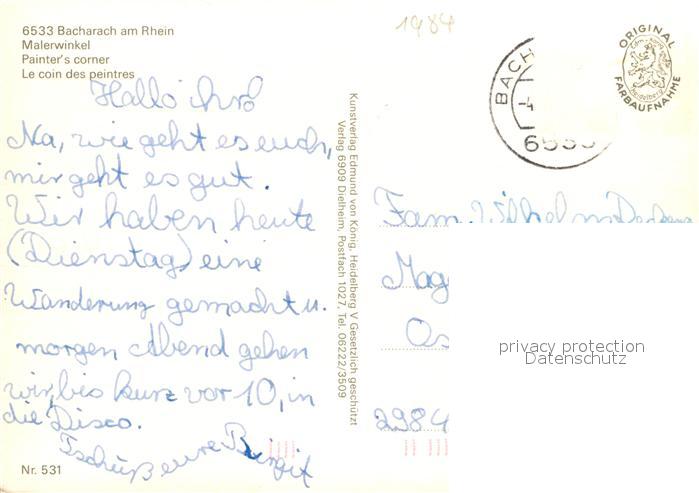 6533 Bacharach am Rhein
Malerwinkel
Painter's corner
Le coin des peintres
Hallo ihr
Na, wie geht es euch,
mir geht es gut.
Wir haben heute
(Dienstag) eine
Wanderung gemacht u.
morgen Abend gehen
wir, bis kurz vor 10, in
die Disco.
Tschüß eure Birgit
Nr. 531
Kunstverlag Edmund von König, Heidelberg V Gesetzlich geschützt
Verlag 6909 Dielheim, Postfach 1027, Tel. 06222/3509
1984
BACH
-4
6533
ORIGINAL
Edm. König
Heidelberg
FARBAUFNAHME
Fam. Wilhelm
Mag
Os
2984
privacy protection
Datenschutz